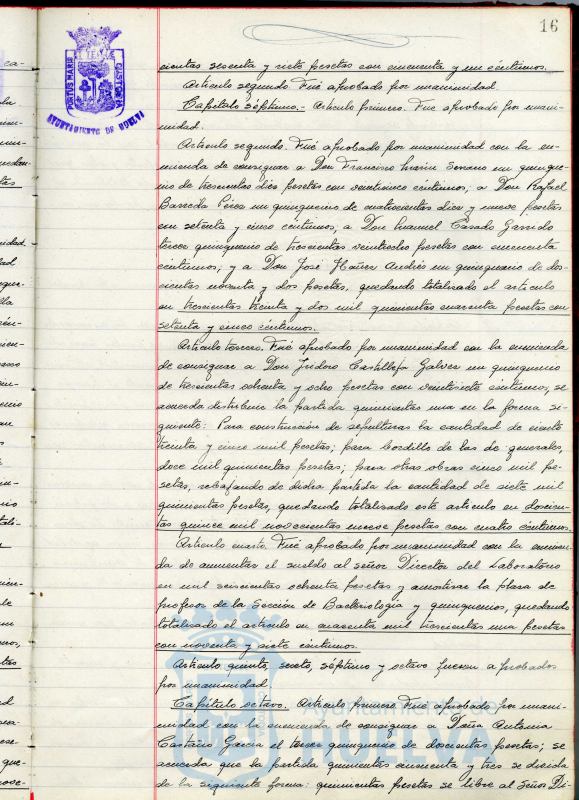 16
PORTUS MARIS ET TERRÆ CUSTODIA
AYUNTAMIENTO DE HUELVA
cientas sesenta y siete pesetas con cincuenta y un céntimos.
Artículo segundo. Fué aprobado por unanimidad.
Capítulo séptimo.- Artículo primero. Fué aprobado por unani-
midad.
Artículo segundo. Fué aprobado por unanimidad con la en-
mienda de consignar a Don Francisco Marín Serrano un quinque-
nio de trescientas diez pesetas con veinticinco céntimos; a Don Rafael
Barreda Pérez un quinquenio de cuatrocientas diez y nueve pesetas
con setenta y cinco céntimos; a Don Manuel Casado Garrido
tercer quinquenio de trescientas veintiocho pesetas con cincuenta
céntimos; y a Don José Ibáñez Andrés un quinquenio de dos-
cientas noventa y dos pesetas, quedando totalizado el artículo
en trescientas treinta y dos mil quinientas cuarenta pesetas con
setenta y cinco céntimos.
Artículo tercero. Fué aprobado por unanimidad con la enmienda
de consignar a Don Isidoro Castilleja Galvez un quinquenio
de trescientas ochenta y ocho pesetas con veintisiete céntimos, se
acuerda distribuir la partida quinientas una en la forma si-
guiente: Para construcción de sepulturas la cantidad de ciento
treinta y cinco mil pesetas; para bordillo de las de generales,
doce mil quinientas pesetas; para otras obras cinco mil pe-
setas, rebajando de dicha partida la cantidad de siete mil
quinientas pesetas, quedando totalizado este artículo en doscien-
tas quince mil novecientas nueve pesetas con cuatro céntimos.
Artículo cuarto. Fué aprobado por unanimidad con la enmien-
da de aumentar el sueldo al señor Director del Laboratorio
en mil seiscientas ochenta pesetas y amortizar la plaza de
profesor de la Sección de Bacteriología y quinquenios, quedando
totalizado el artículo en cuarenta mil trescientas una pesetas
con noventa y siete céntimos.
Artículo quinto, sexto, séptimo y octavo fueron aprobados
por unanimidad.
Capítulo octavo. Artículo primero Fué aprobado por unani-
midad con la enmienda de consignar a Doña Antonia
Castaño García el tercer quinquenio de doscientas pesetas; se
acuerda que la partida quinientas cincuenta y tres se divida
de la siguiente forma: quinientas pesetas se libre al Señor Di-
Ayuntamiento de
HUELVA